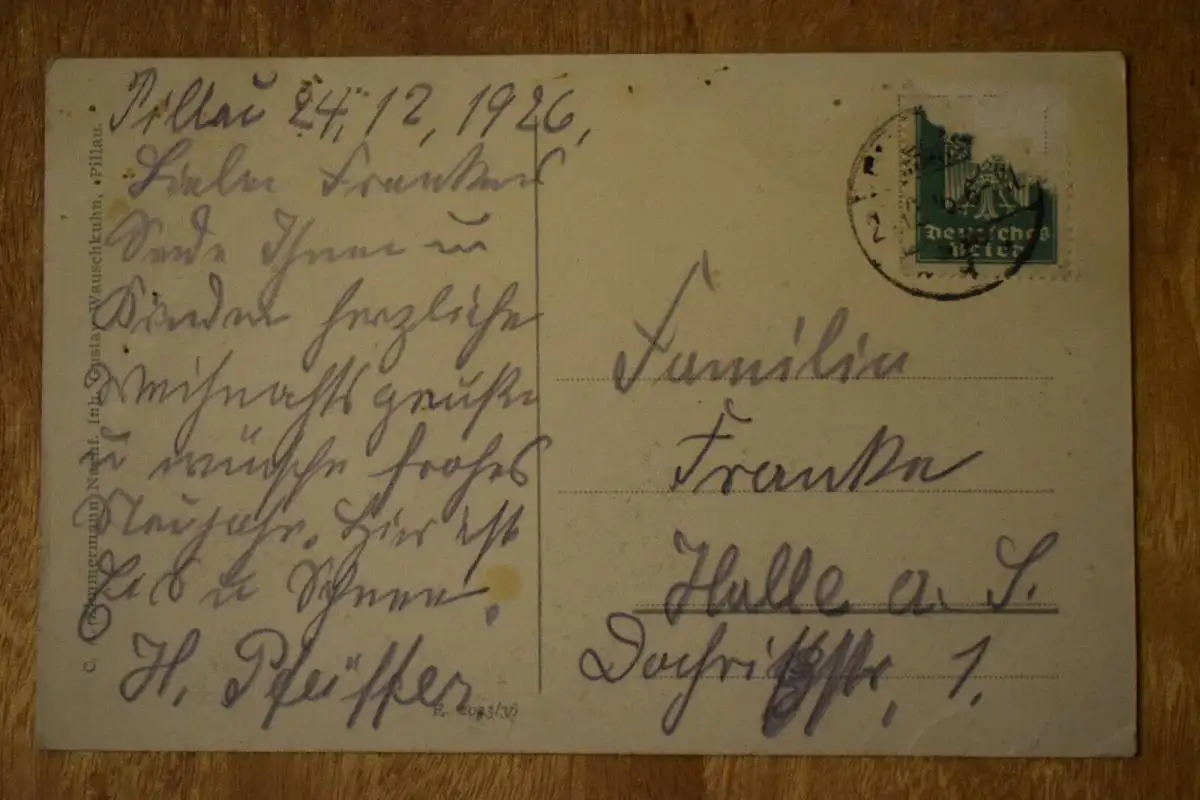 Pillau 24, 12, 1926,
Liebe Frankes
Sende Ihnen u
Kindern herzliche
Weihnachtsgrüße
u wünsche frohes
Neujahr. Hier ist
Eis u Schnee.
H. Pfeiffer
C. Zimmermann Nachf. Inh. Gustav Wauschkuhn, Pillau.
Deutsches
Reich
Familie
Franke
Halle a. S.
1.